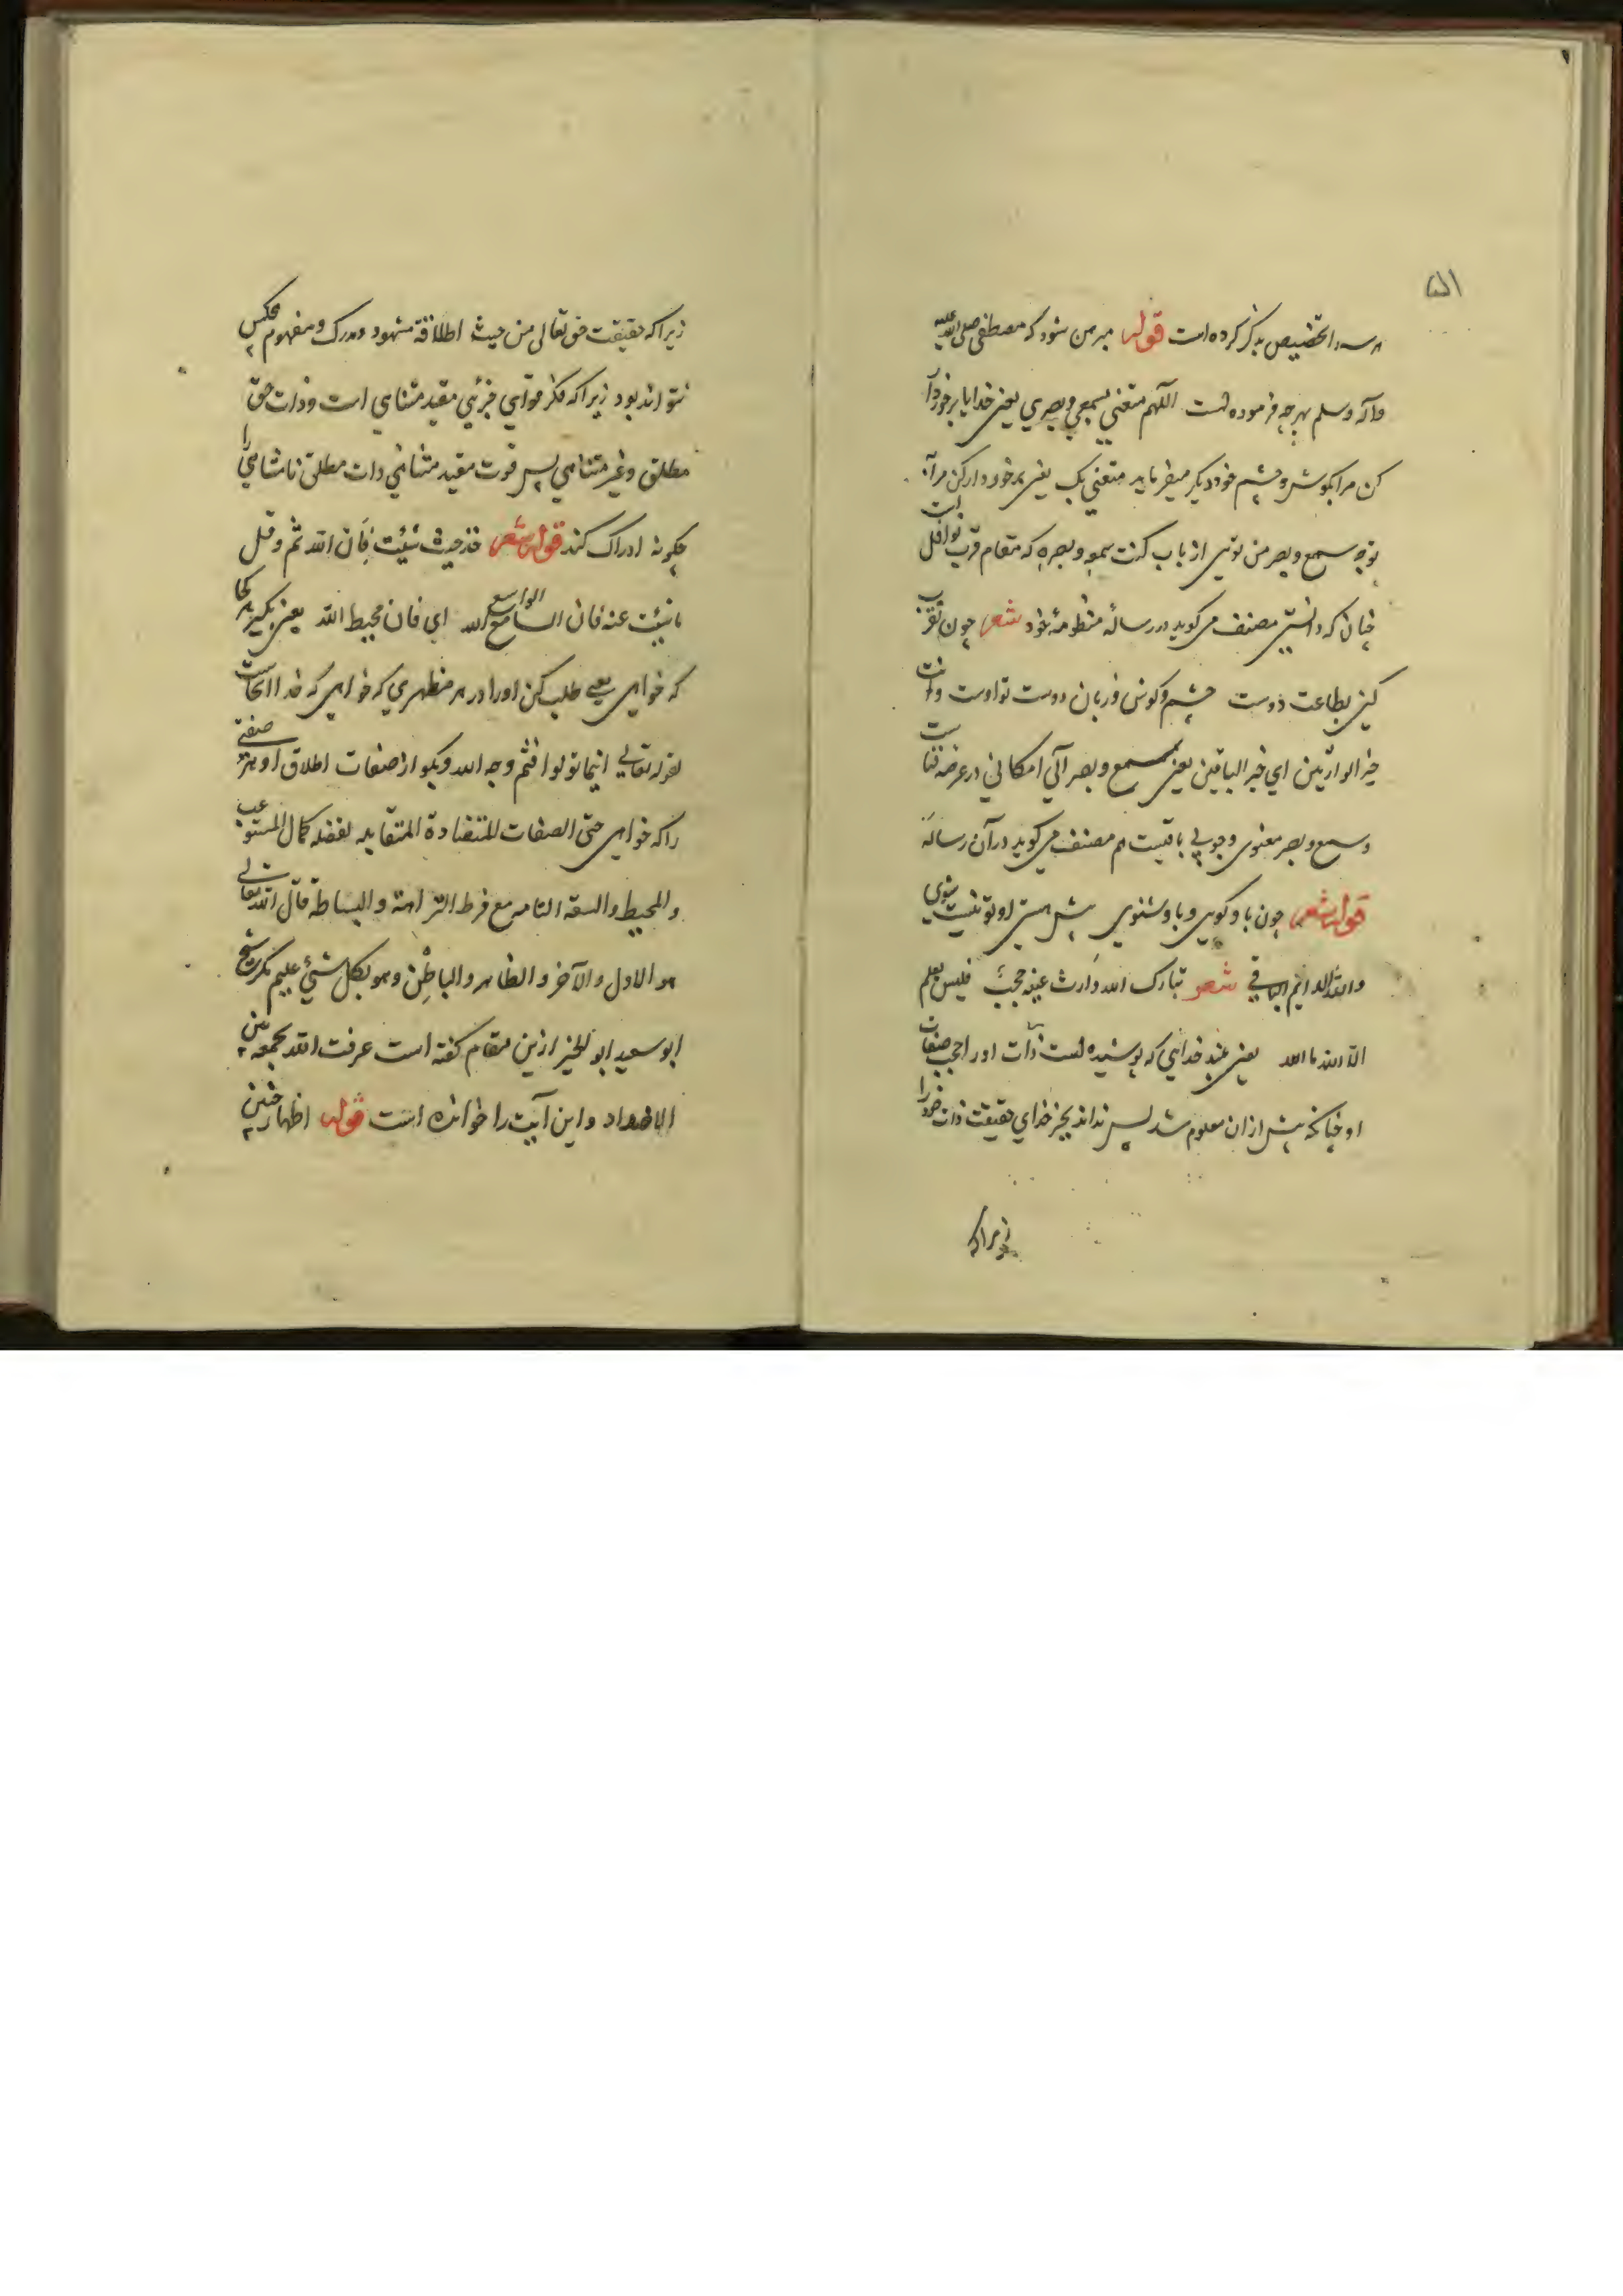 ۵۱
هر سه را تخصیص بذکر کرده است قوله مبرهن شود که مصطفی صلی الله علیه
وآله وسلم بهر چه فرموده است اللهم متعنی بسمعی وبصری یعنی خدایا برخوردار
کن مرا بگوش وچشم خود دیگر میفرماید متعنی بک یعنی برخوردار کن مرا
بتو چه سمع وبصر من توئی از باب کنت سمعه وبصره که مقام قرب نوافل است
چنان که دانستی مصنف می گوید در رساله منظومۀ خود شعر چون تقرب
کنی بطاعت دوست چشم وگوش وزبان دوست تو اوست وانت
خیر الوارثین ای خیر الباقین یعنی سمع وبصر آلی امکانی در عرضه فناست
وسمع وبصر معنوی وجوبی باقیست هم مصنف می گوید در آن رساله
قوله شعر چون باو گویی وباو شنوی پیش هستی او تو نیست شوی
والله الدایم الباقی شعر تبارک الله وارت عینه حجب فلیس یعلم
الا الله ما الله یعنی خدایی که پوشیده است ذات اورا حجب صفات
او چنانکه پیش ازان معلوم شد پس نداند بجز خدای حقیقت ذات خود را
زیراکه
زیراکه حقیقت حق تعالی من حیث اطلاقه مشهود ومدرک ومفهوم هیچکس
نتواند بود زیراکه فکر قوای جزئی مقید متناهی است وذات حق
مطلق وغیر متناهی پس قوت مقید متناهی ذات مطلق نامتناهی را
چگونه ادراک کند قوله شعر خذ حیث شئت فان الله ثم وقل
ما شئت عنه فان الواسع الله ای فان محیط الله یعنی بگیر هر کجا
که خواهی یعنی طلب کن اورا در هر مظهری که خواهی که خدا آنجاست
لقوله تعالی اینما تولوا فثم وجه الله وبگو از صفات اطلاق او هر صفتی
را که خواهی حتی الصفات المتضادة المتقابله لفضله کمال المستوعب
والمحیط والسعة التامه مع فرط النزاهة والبساطة قال الله تعالی
هو الاول والآخر والظاهر والباطن وهو بکل شیئ علیم مگر شیخ
ابو سعید ابو الخیر ازین مقام گفته است عرفت الله بجمعه بین
الاضداد واین آیت را خوانده است قوله اظهار چنین